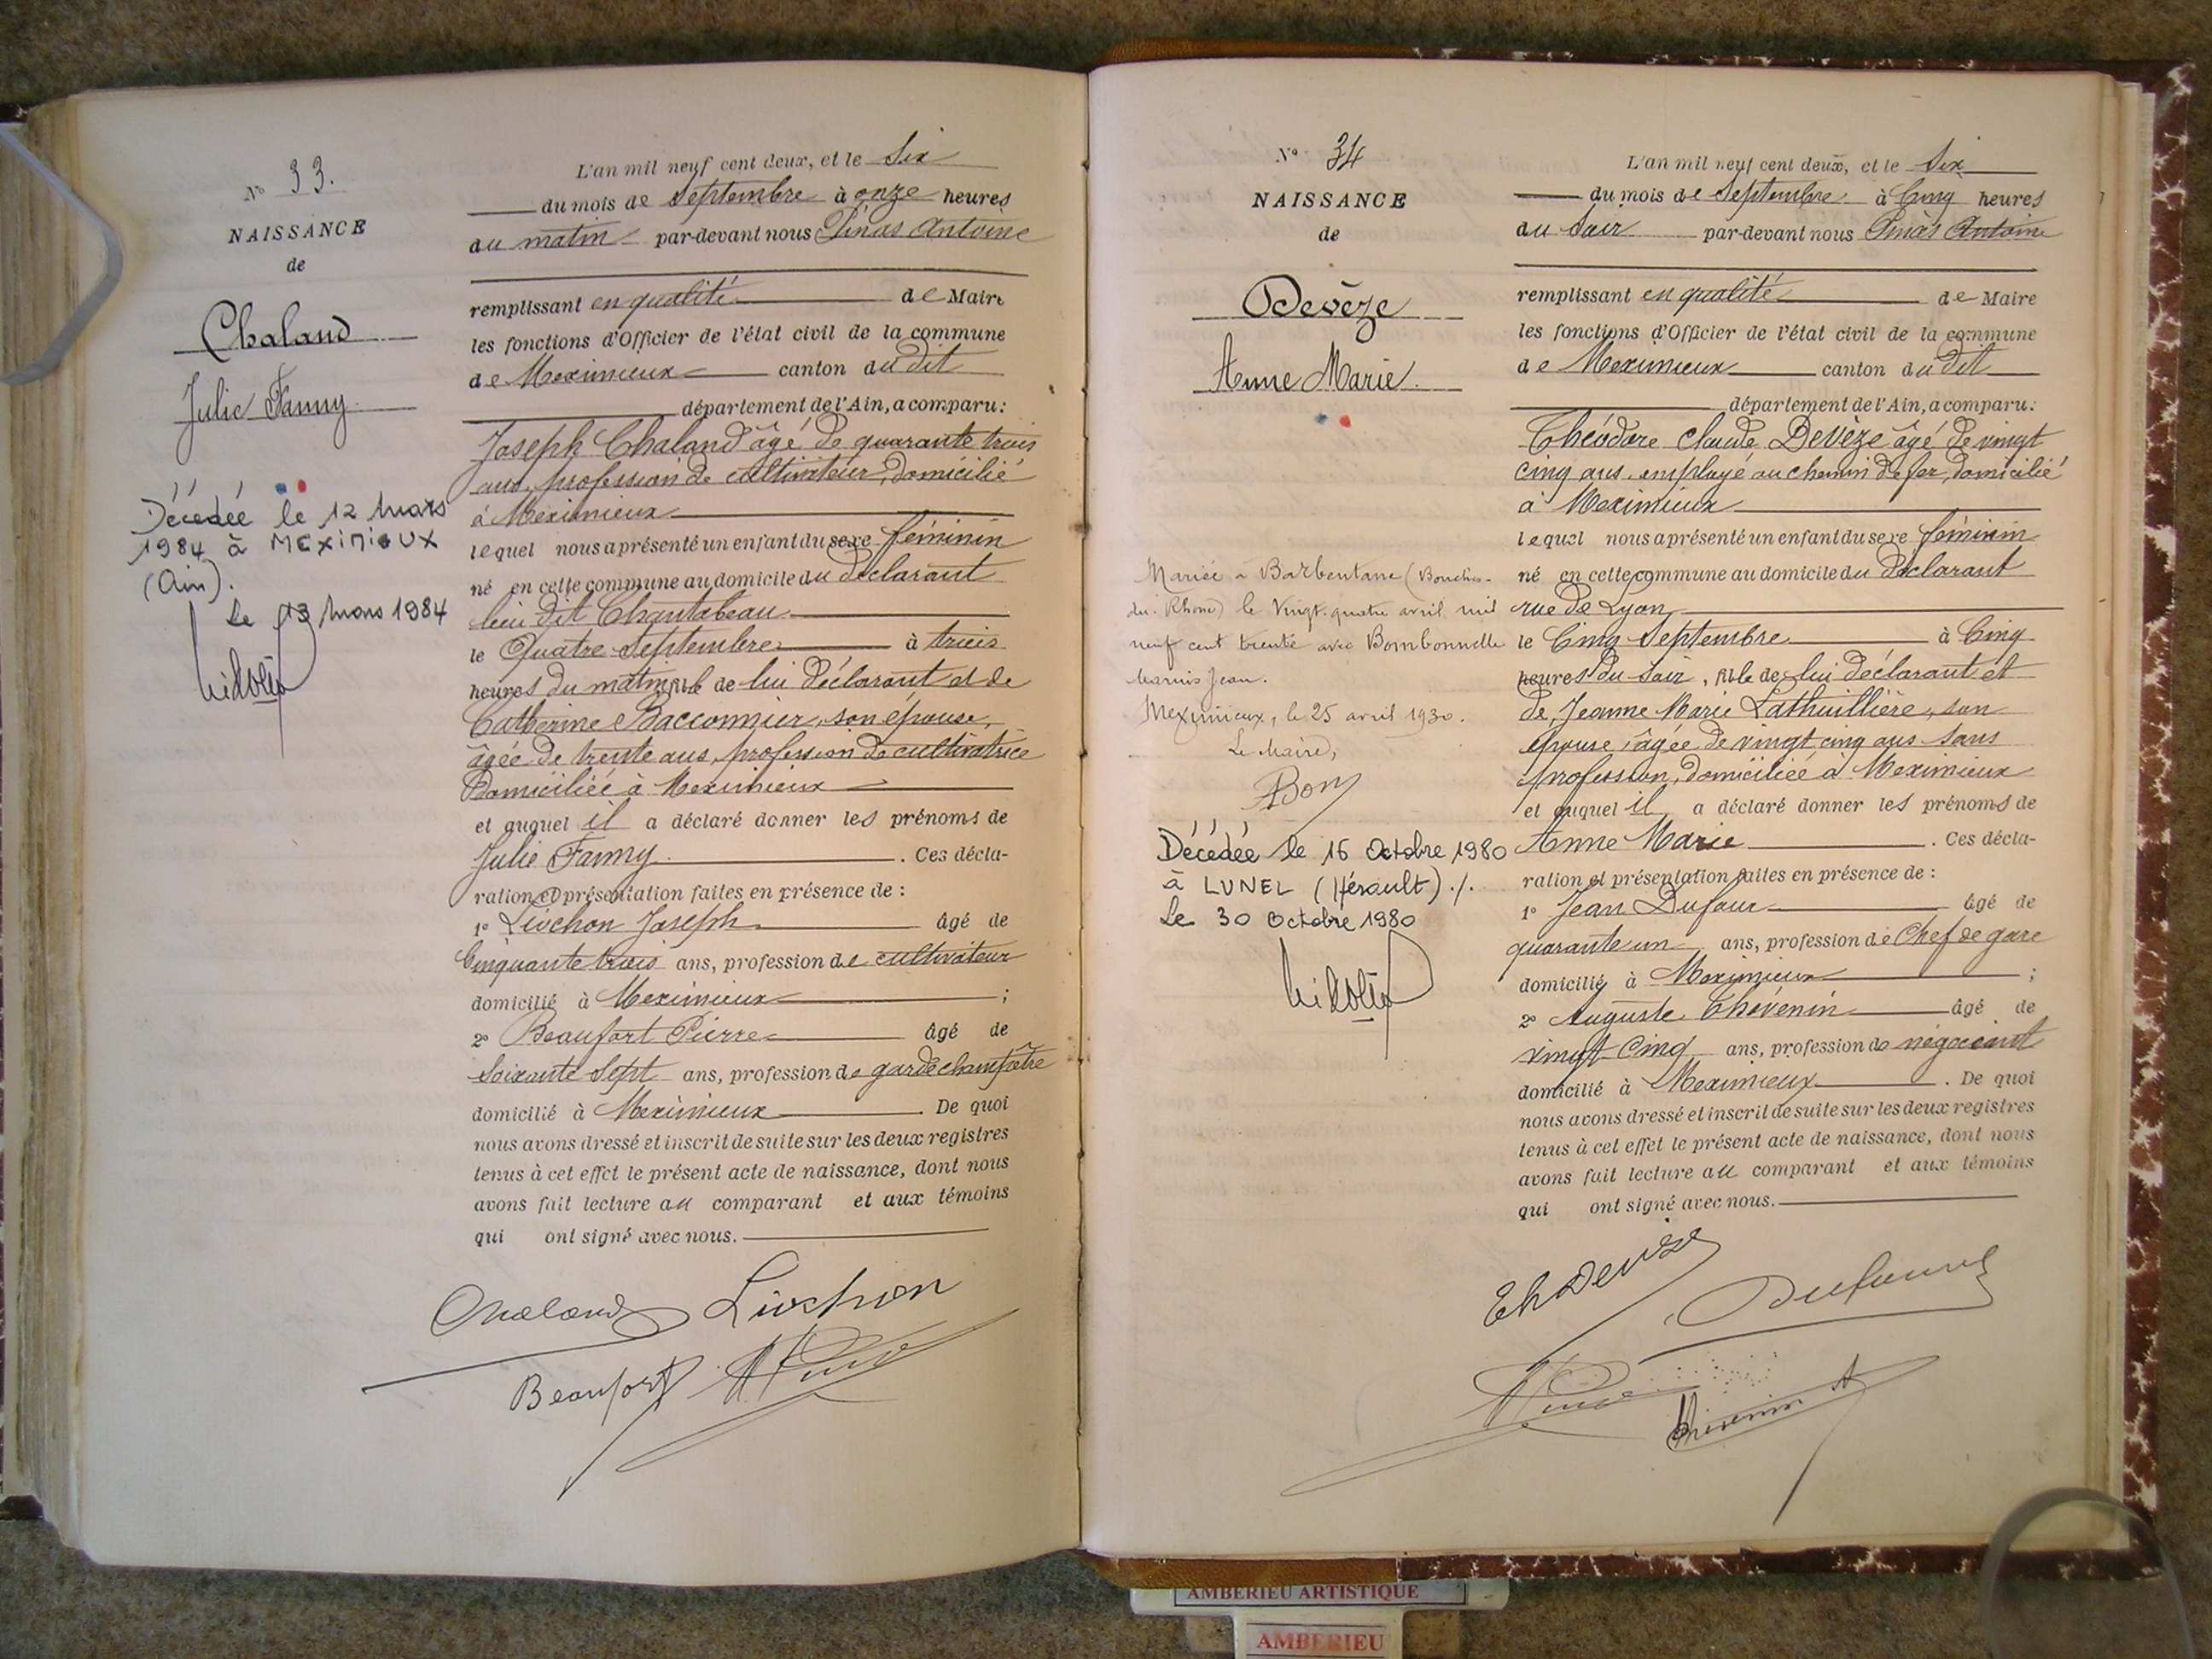 N° 33.
NAISSANCE
de
Chaland
Julie Fanny
Décédée le 12 Mars
1984 à MEXIMIEUX
(Ain).
le 13 Mars 1984
L'an mil neuf cent deux, et le Six
du mois de Septembre à onze heures
du matin par-devant nous Pinas Antoine
remplissant en qualité de Maire
les fonctions d'Officier de l'état civil de la commune
de Meximieux canton du dit
département de l'Ain, a comparu:
Joseph Chaland âgé de quarante trois
ans, profession de cultivateur, domicilié
à Meximieux
lequel nous a présenté un enfant du sexe féminin
né en cette commune au domicile du déclarant
lieu dit Chantabeau
le Quatre Septembre à trois
heures du matin, fille de lui déclarant et de
Catherine Bacconnier, son épouse,
âgée de trente ans, profession de cultivatrice
Domiciliée à Meximieux
et auquel il a déclaré donner les prénoms de
Julie Fanny. Ces décla-
ration et présentation faites en présence de :
1° Liochon Joseph âgé de
Cinquante trois ans, profession de cultivateur
domicilié à Meximieux ;
2° Beaufort Pierre âgé de
Soixante Sept ans, profession de garde champêtre
domicilié à Meximieux. De quoi
nous avons dressé et inscrit de suite sur les deux registres
tenus à cet effet le présent acte de naissance, dont nous
avons fait lecture au comparant et aux témoins
qui ont signé avec nous.
Chaland Liochon
Beaufort
N° 34
NAISSANCE
de
Devèze
Anne Marie.
Mariée à Barbentane (Bouches-
du-Rhône) le vingt-quatre avril mil
neuf cent trente avec Bombonnelle
Marius Jean.
Meximieux, le 25 avril 1930.
Le Maire,
Bon
Décédée le 16 Octobre 1980
à LUNEL (Hérault)./.
Le 30 Octobre 1980
L'an mil neuf cent deux, et le Six
du mois de Septembre à Cinq heures
du Soir par-devant nous Pinas Antoine
remplissant en qualité de Maire
les fonctions d'Officier de l'état civil de la commune
de Meximieux canton du dit
département de l'Ain, a comparu:
Théodore Claude Devèze âgé de vingt
cinq ans, employé au chemin de fer, domicilié
à Meximieux
lequel nous a présenté un enfant du sexe féminin
né en cette commune au domicile du Déclarant
rue de Lyon
le Cinq Septembre à Cinq
heures du Soir, fille de lui déclarant et
de Jeanne Marie Lathuillière, son
épouse, âgée de vingt cinq ans sans
profession, domiciliée à Meximieux
et auquel il a déclaré donner les prénoms de
Anne Marie. Ces décla-
ration et présentation faites en présence de :
1° Jean Dufour âgé de
quarante un ans, profession de Chef de gare
domicilié à Meximieux ;
2° Auguste Thévenin âgé de
vingt Cinq ans, profession de négociant
domicilié à Meximieux. De quoi
nous avons dressé et inscrit de suite sur les deux registres
tenus à cet effet le présent acte de naissance, dont nous
avons fait lecture au comparant et aux témoins
qui ont signé avec nous.
Th Devèze
Dufour
Thévenin A
AMBERIEU ARTISTIQUE
AMBERIEU